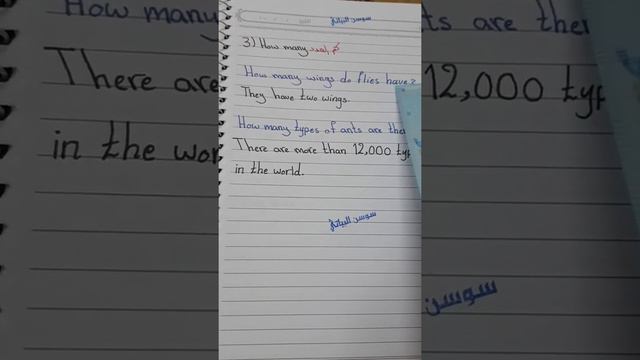 سوسن البياتي
3) How many كم العدد
How many wings do flies have?
They have two wings.
How many types of ants are the
There are more than 12,000 typ
in the world.
سوسن البياتي
How many
ts are ther
There are
12,000 typ
in the wor
سوسن